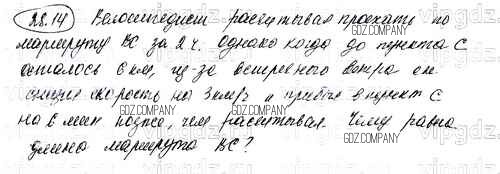 28.14 Велосипедист рассчитывал проехать по
маршруту ВС за 2 ч. Однако когда до пункта С
осталось 6 км, из-за встречного ветра он
снизил скорость на 3 км/ч и прибыл в пункт С
на 6 мин позже, чем рассчитывал. Чему равна
длина маршрута ВС?
GDZ.COMPANY
vipgdz